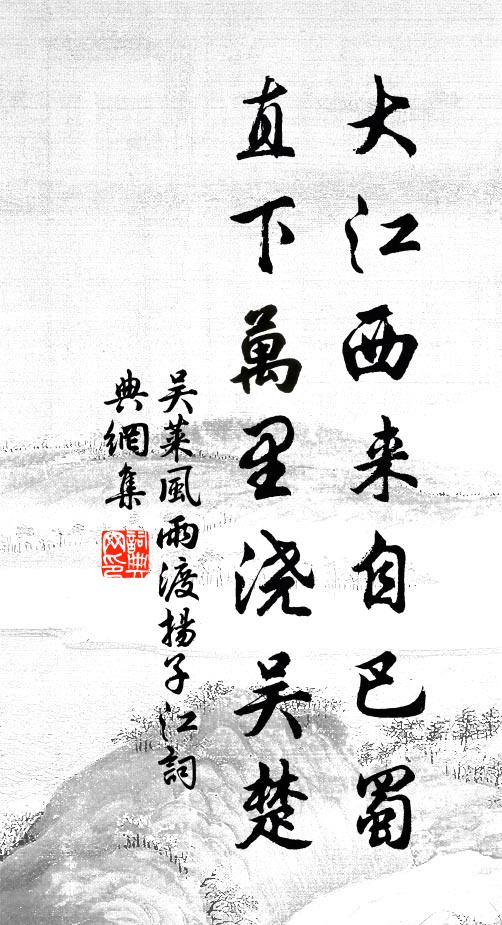 大江西来自巴蜀
直下萬里浇吴楚
吴萊風雨渡揚子江詞
典網集
詞典網印